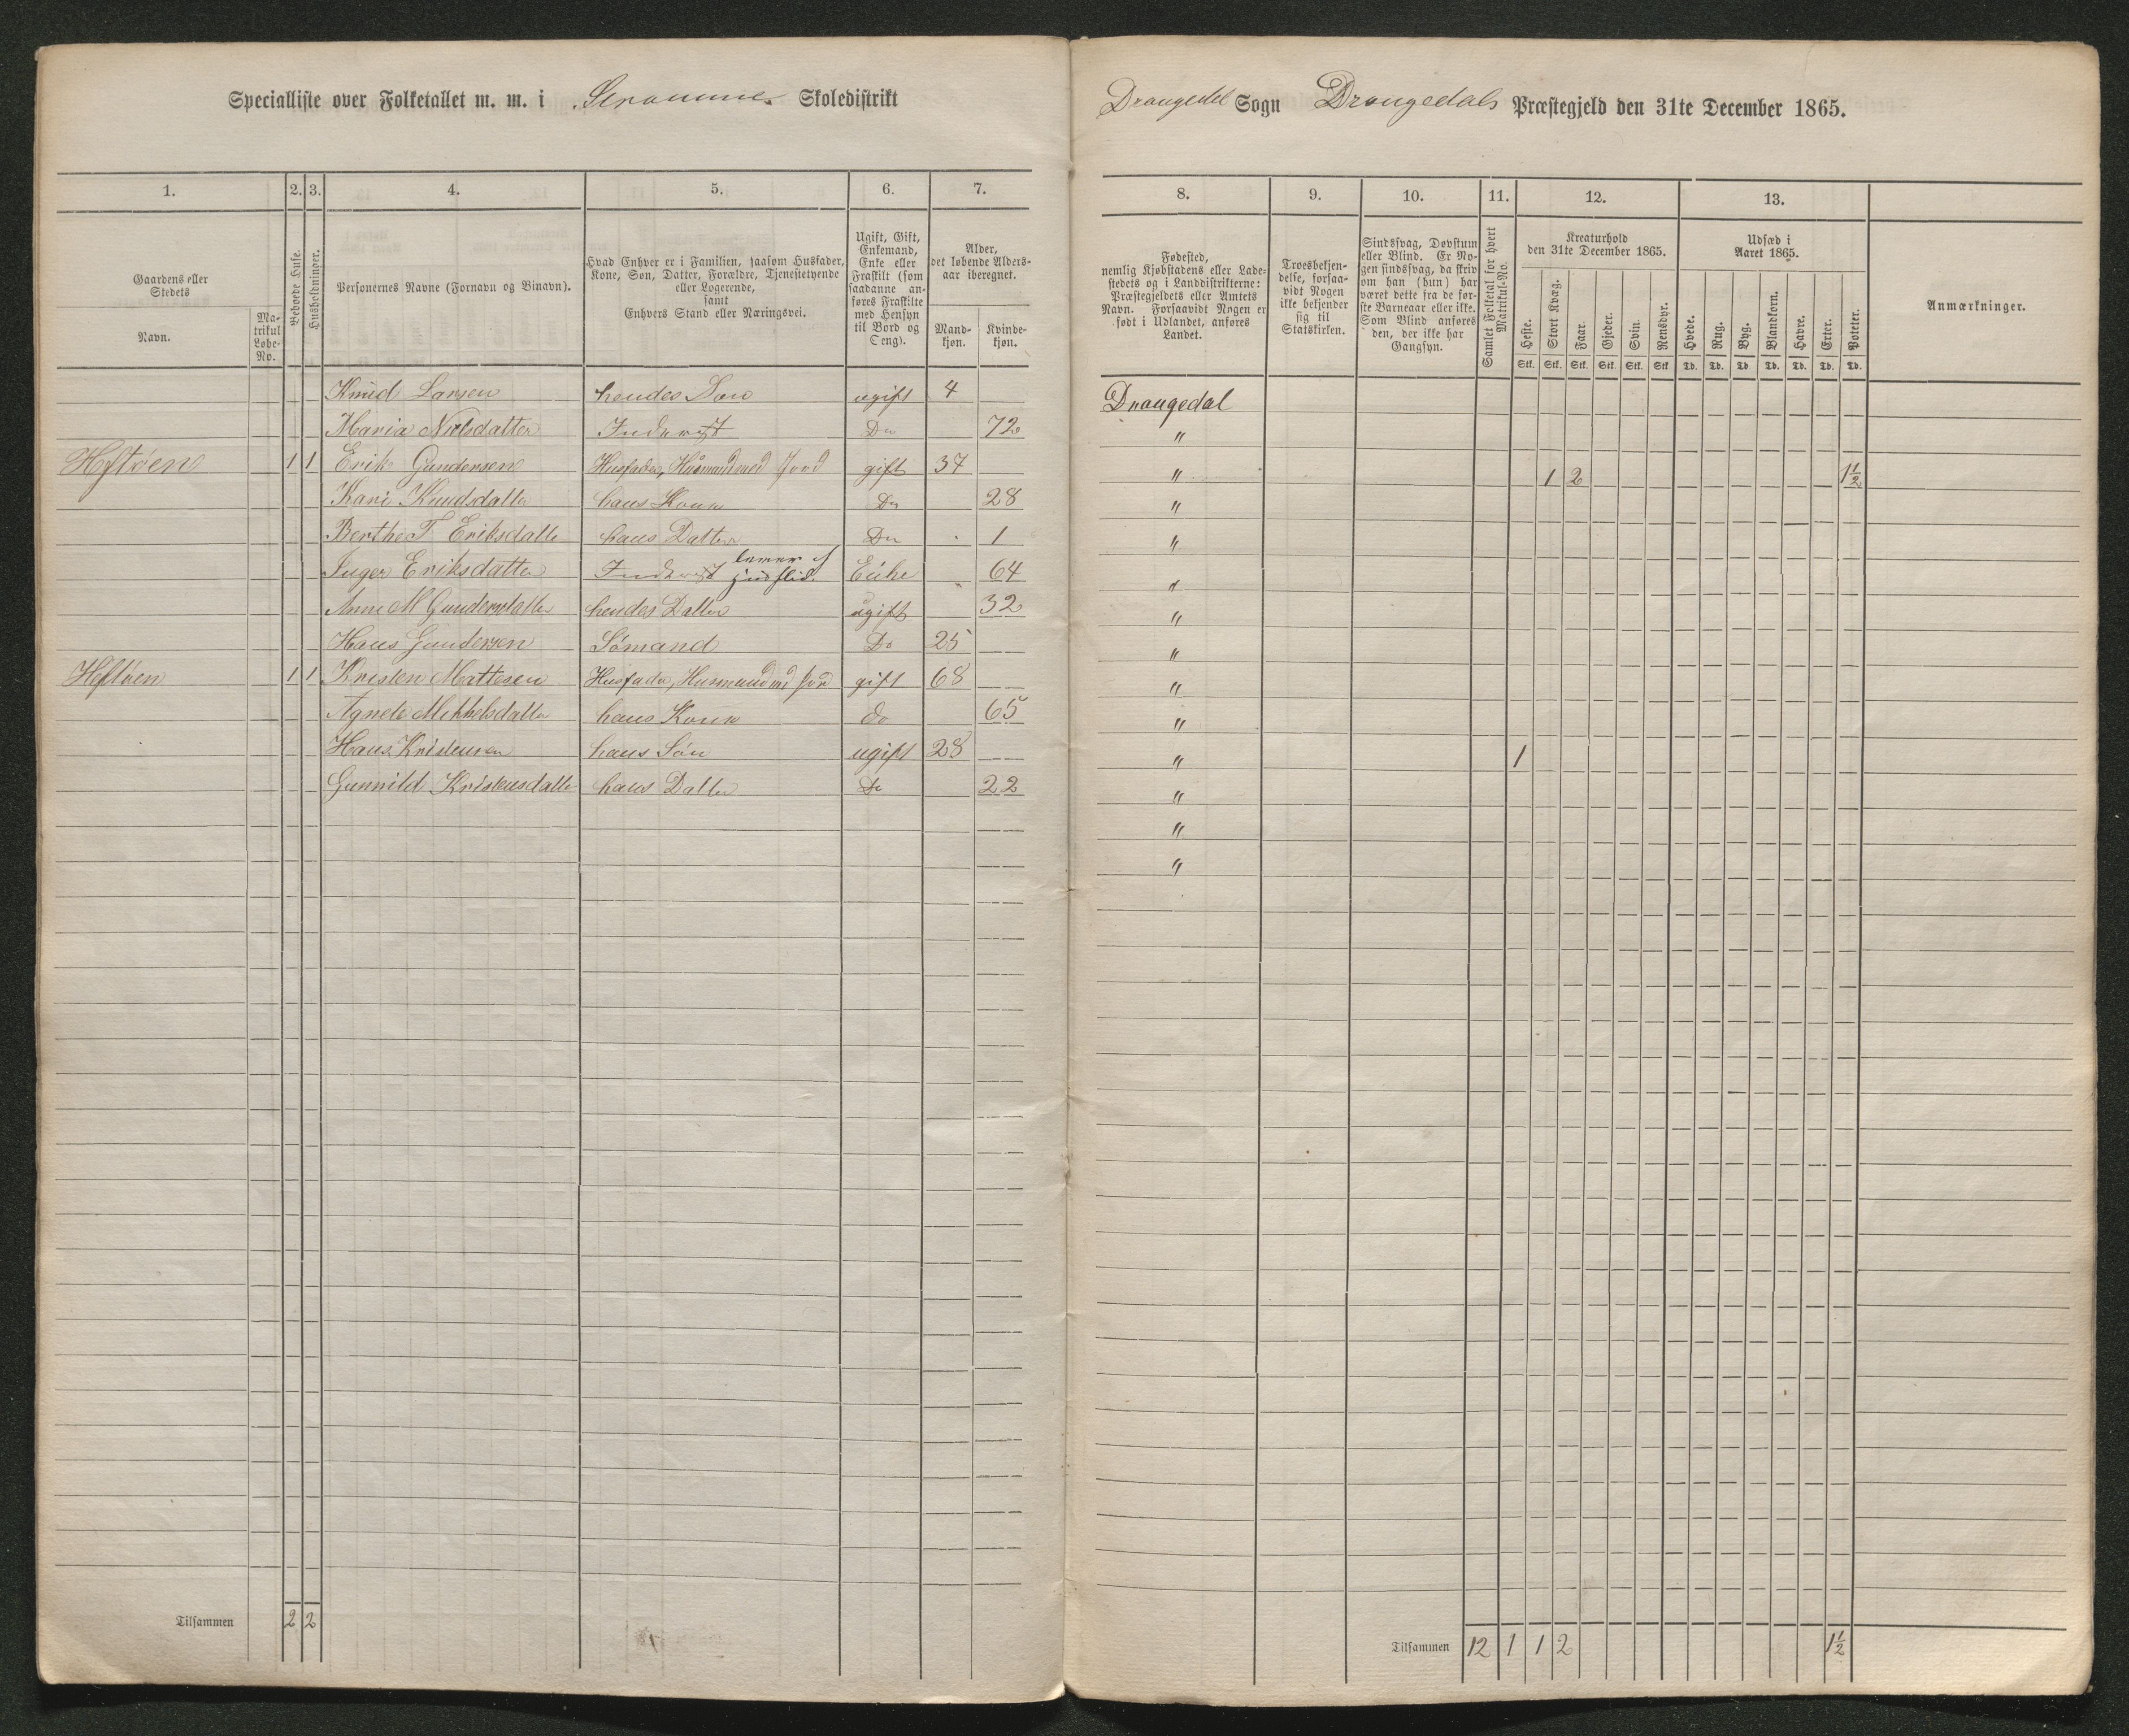 Specialliste over Folketallet m. m. i Skoledistrikt
Drangedal Sogn Drangedals Præstegjeld den 31te December 1865.
1. 2. 3. 4. 5. 6. 7. 8. 9. 10. 11. 12. 13.
Gaardens eller Stedets
Navn.
Matrikul Løbe-No.
Beboede Huse.
Husholdninger.
Personernes Navne (Fornavn og Binavn).
Hvad Enhver er i Familien, saasom Husfader,
Kone, Søn, Datter, Forældre, Tjenestetyende
eller Logerende,
samt
Enhvers Stand eller Næringsvei.
Ugift, Gift,
Enkemand,
Enke eller
Fraskilt (som
saadanne an-
føres Fraskilte
med Hensyn
til Bord og
Seng).
Alder,
det løbende Alders-
aar iberegnet.
Mand-
kjøn.
Kvinde-
kjøn.
Fødested,
nemlig Kjøbstadens eller Lade-
stedets og i Landdistrikterne:
Præstegjeldets eller Amtets
Navn. Forsaavidt Nogen er
født i Udlandet, anføres
Landet.
Troesbekjen-
delse, forsaa-
vidt Nogen
ikke bekjender
sig til
Statskirken.
Sindssvag, Døvstum
eller Blind. Er No-
gen sindssvag, da skriv
om han (hun) har
været dette fra de før-
ste Barneaar eller ikke.
Som Blind anføres
den, der ikke har
Gangsyn.
Samlet Folketal for hvert
Matrikul-No.
Kreaturhold
den 31te December 1865.
Heste. Stort Kvæg. Faar. Gjeder. Svin. Rensdyr.
Stk. Stk. Stk. Stk. Stk. Stk
Udsæd i
Aaret 1865.
Hvede. Rug. Byg. Blandkorn. Havre. Erter. Poteter.
Td. Td. Td Td. Td. Td. Td.
Anmærkninger.
Knud Larsen hendes Søn ugift 4 Drangedal
Maria Nielsdatter Inderst Do 72 "
Heftøen 1 1 Erik Gundersen Husfader, Husmand med Jord gift 37 " 1 2 1½
Kari Knudsdatter hans Kone Do 28 "
Berthe T Eriksdatter hans Datter Do 1 "
Inger Eriksdatter Inderst lever af Enke 64 "
Anne M Gundersdatter hendes Datter ugift 32 "
Hans Gundersen Sømand Do 25 "
Heftøen 1 1 Kristen Mattesen Husfader, Husmand med Jord gift 68 "
Agnete Mikkelsdatter hans Kone do 65 "
Hans Kristensen hans Søn ugift 28 " 1
Gunnild Kristensdatter hans Datter Do 22 "
"
"
Tilsammen 2 2
Tilsammen 12 1 1 2 1½